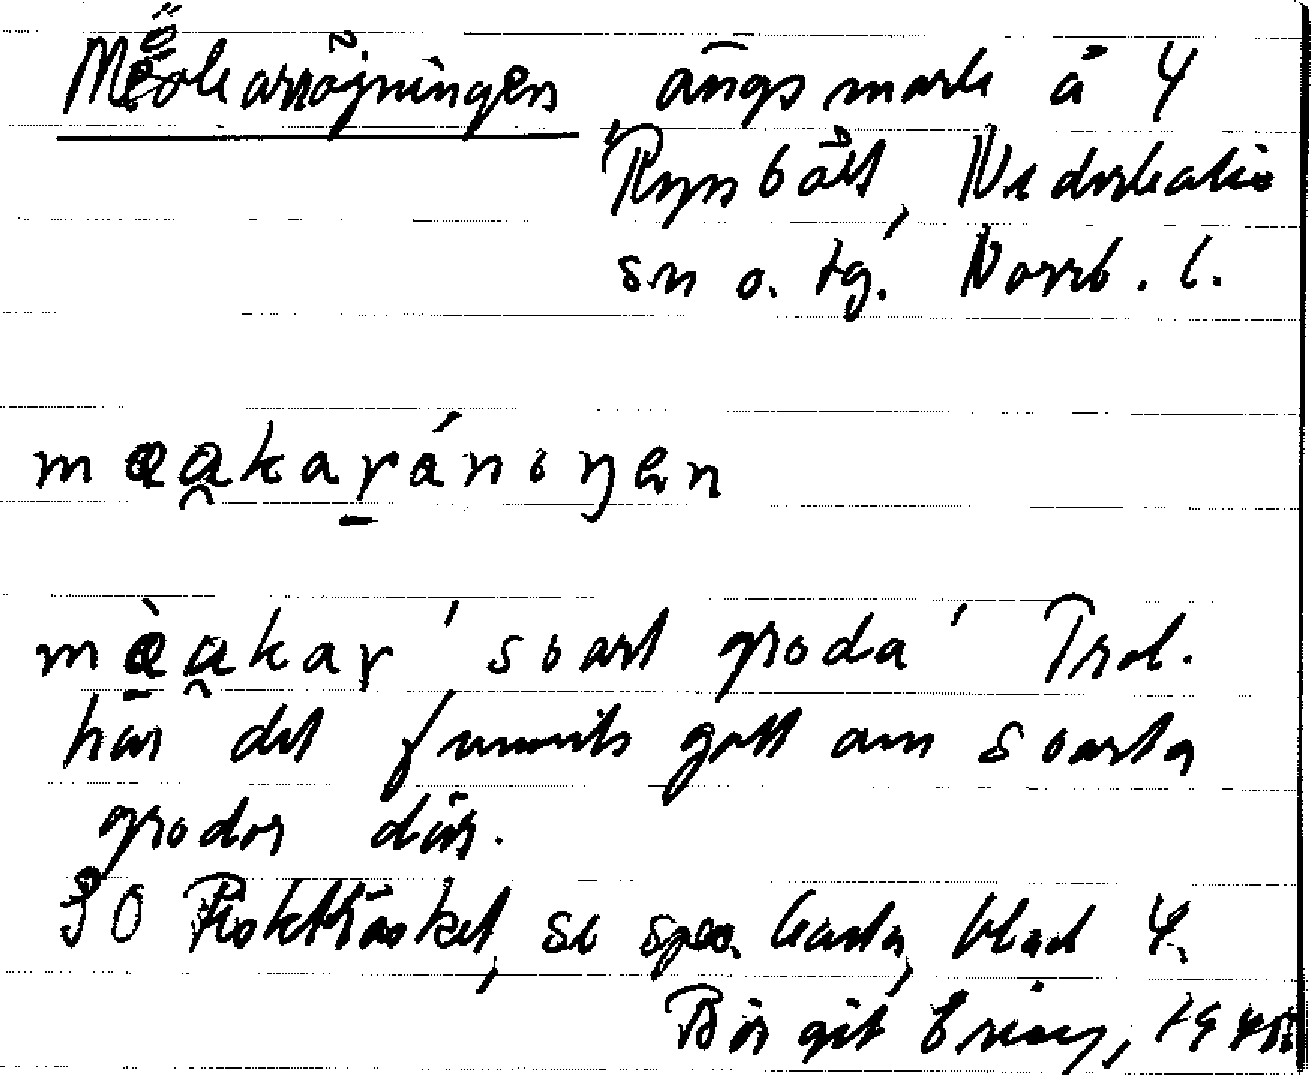 Mèokarröjningen ängsmark å 4
Rynbält, Nederkalix
sn o. tg. Norrb. l.
mæa̯karánoŋen
mæ̀a̯kar 'svart groda' Trol.
har det funnits gott om svarta
grodor där.
SO Fiskträsket, se spec. karta, blad 4.
Birgit Eriay, 194